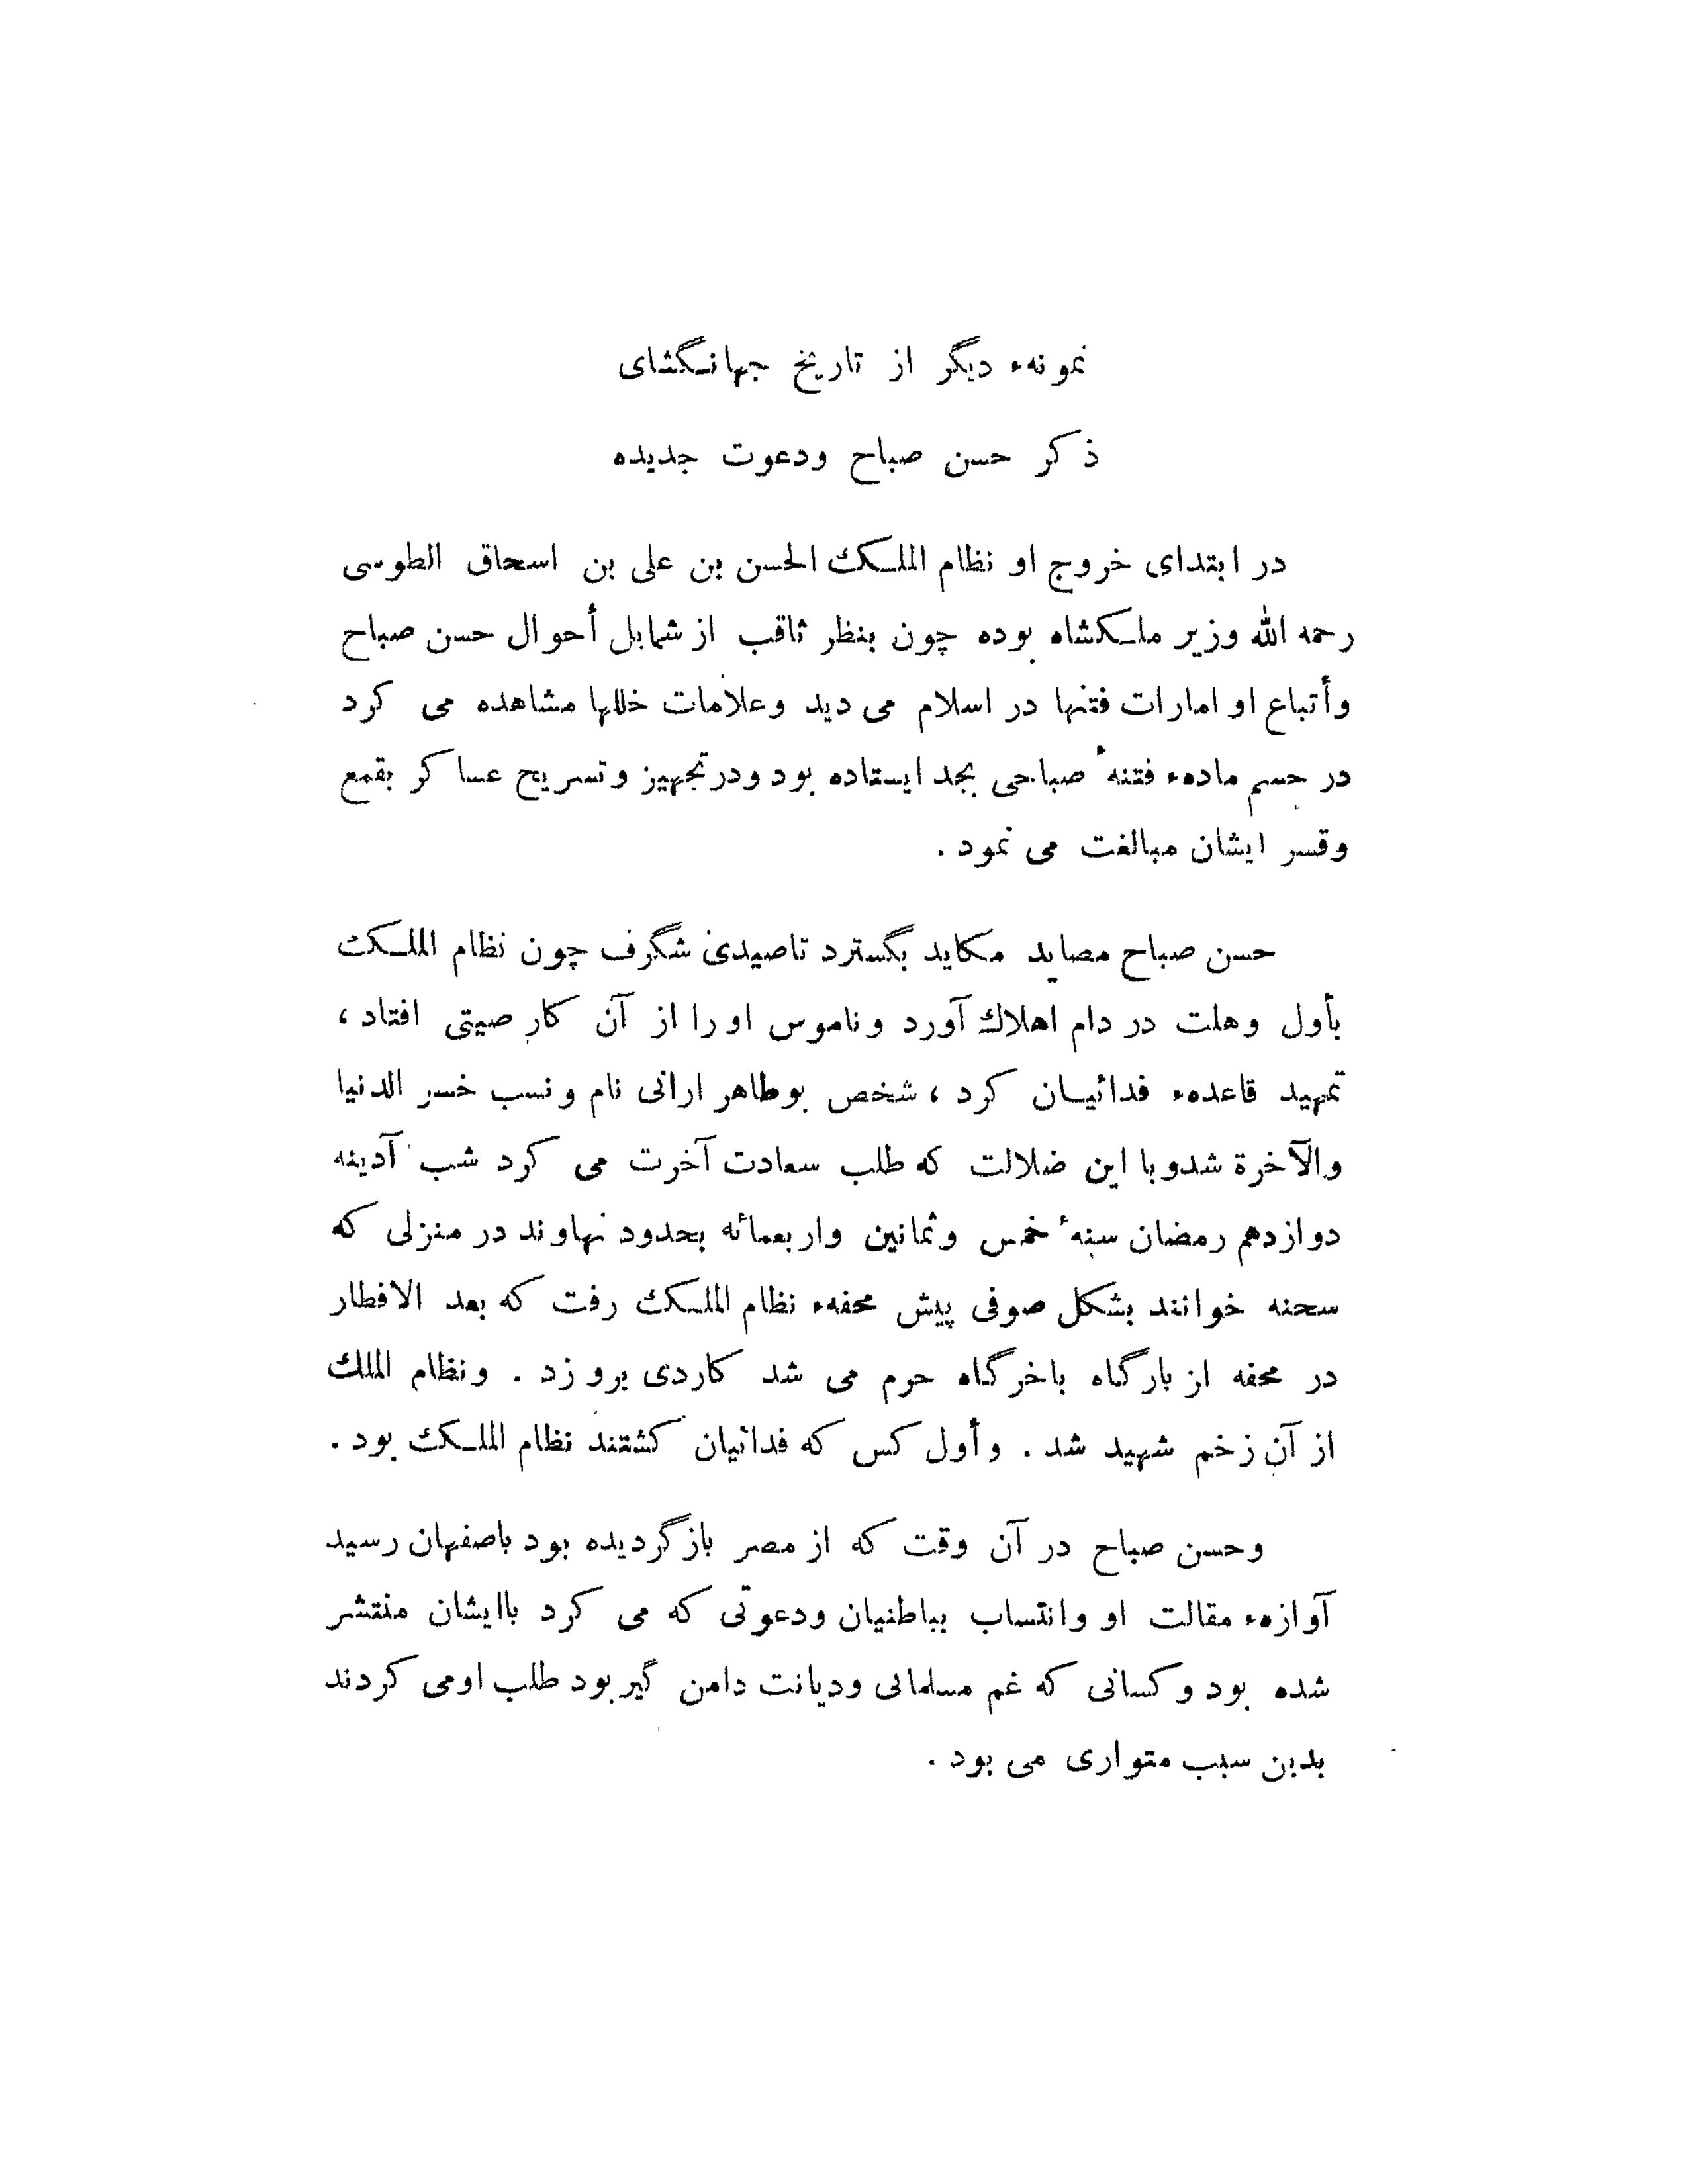 نمونهء ديگر از تاريخ جهانگشاى
ذكر حسن صباح ودعوت جديده
در ابتداى خروج او نظام الملك الحسن بن على بن اسحاق الطوسى
رحمه الله وزير ملكشاه بوده چون بنظر ثاقب از شمايل أحوال حسن صباح
وأتباع او امارات فتنها در اسلام مى ديد وعلامات خللها مشاهده مى كرد
در حسم مادهء فتنهٔ صباحى بجد ايستاده بود ودر تجهيز وتسريح عساكر بقمع
وقسر ايشان مبالغت مى نمود .
حسن صباح مصايد مكايد بگسترد تاصيدى شگرف چون نظام الملك
بأول وهلت در دام اهلاك آورد وناموس اورا از آن كار صيتى افتاد ،
تمهيد قاعدهء فدائيان كرد ، شخص بوطاهر ارانى نام ونسب خسر الدنيا
والآخرة شدوبا اين ضلالت كه طلب سعادت آخرت مى كرد شب آدينه
دوازدهم رمضان سنهٔ خمس وثمانين واربعمائه بحدود نهاوند در منزلى كه
سحنه خوانند بشكل صوفى پيش محفهء نظام الملك رفت كه بعد الافطار
در محفه از بارگاه باخرگاه حرم مى شد كاردى برو زد . ونظام الملك
از آن زخم شهيد شد . وأول كس كه فدائيان كشتند نظام الملك بود .
وحسن صباح در آن وقت كه از مصر بازگرديده بود باصفهان رسيد
آوازهء مقالت او وانتساب بباطنيان ودعوتى كه مى كرد باايشان منتشر
شده بود وكسانى كه غم مسلمانى وديانت دامن گير بود طلب اومى كردند
بدين سبب متوارى مى بود .